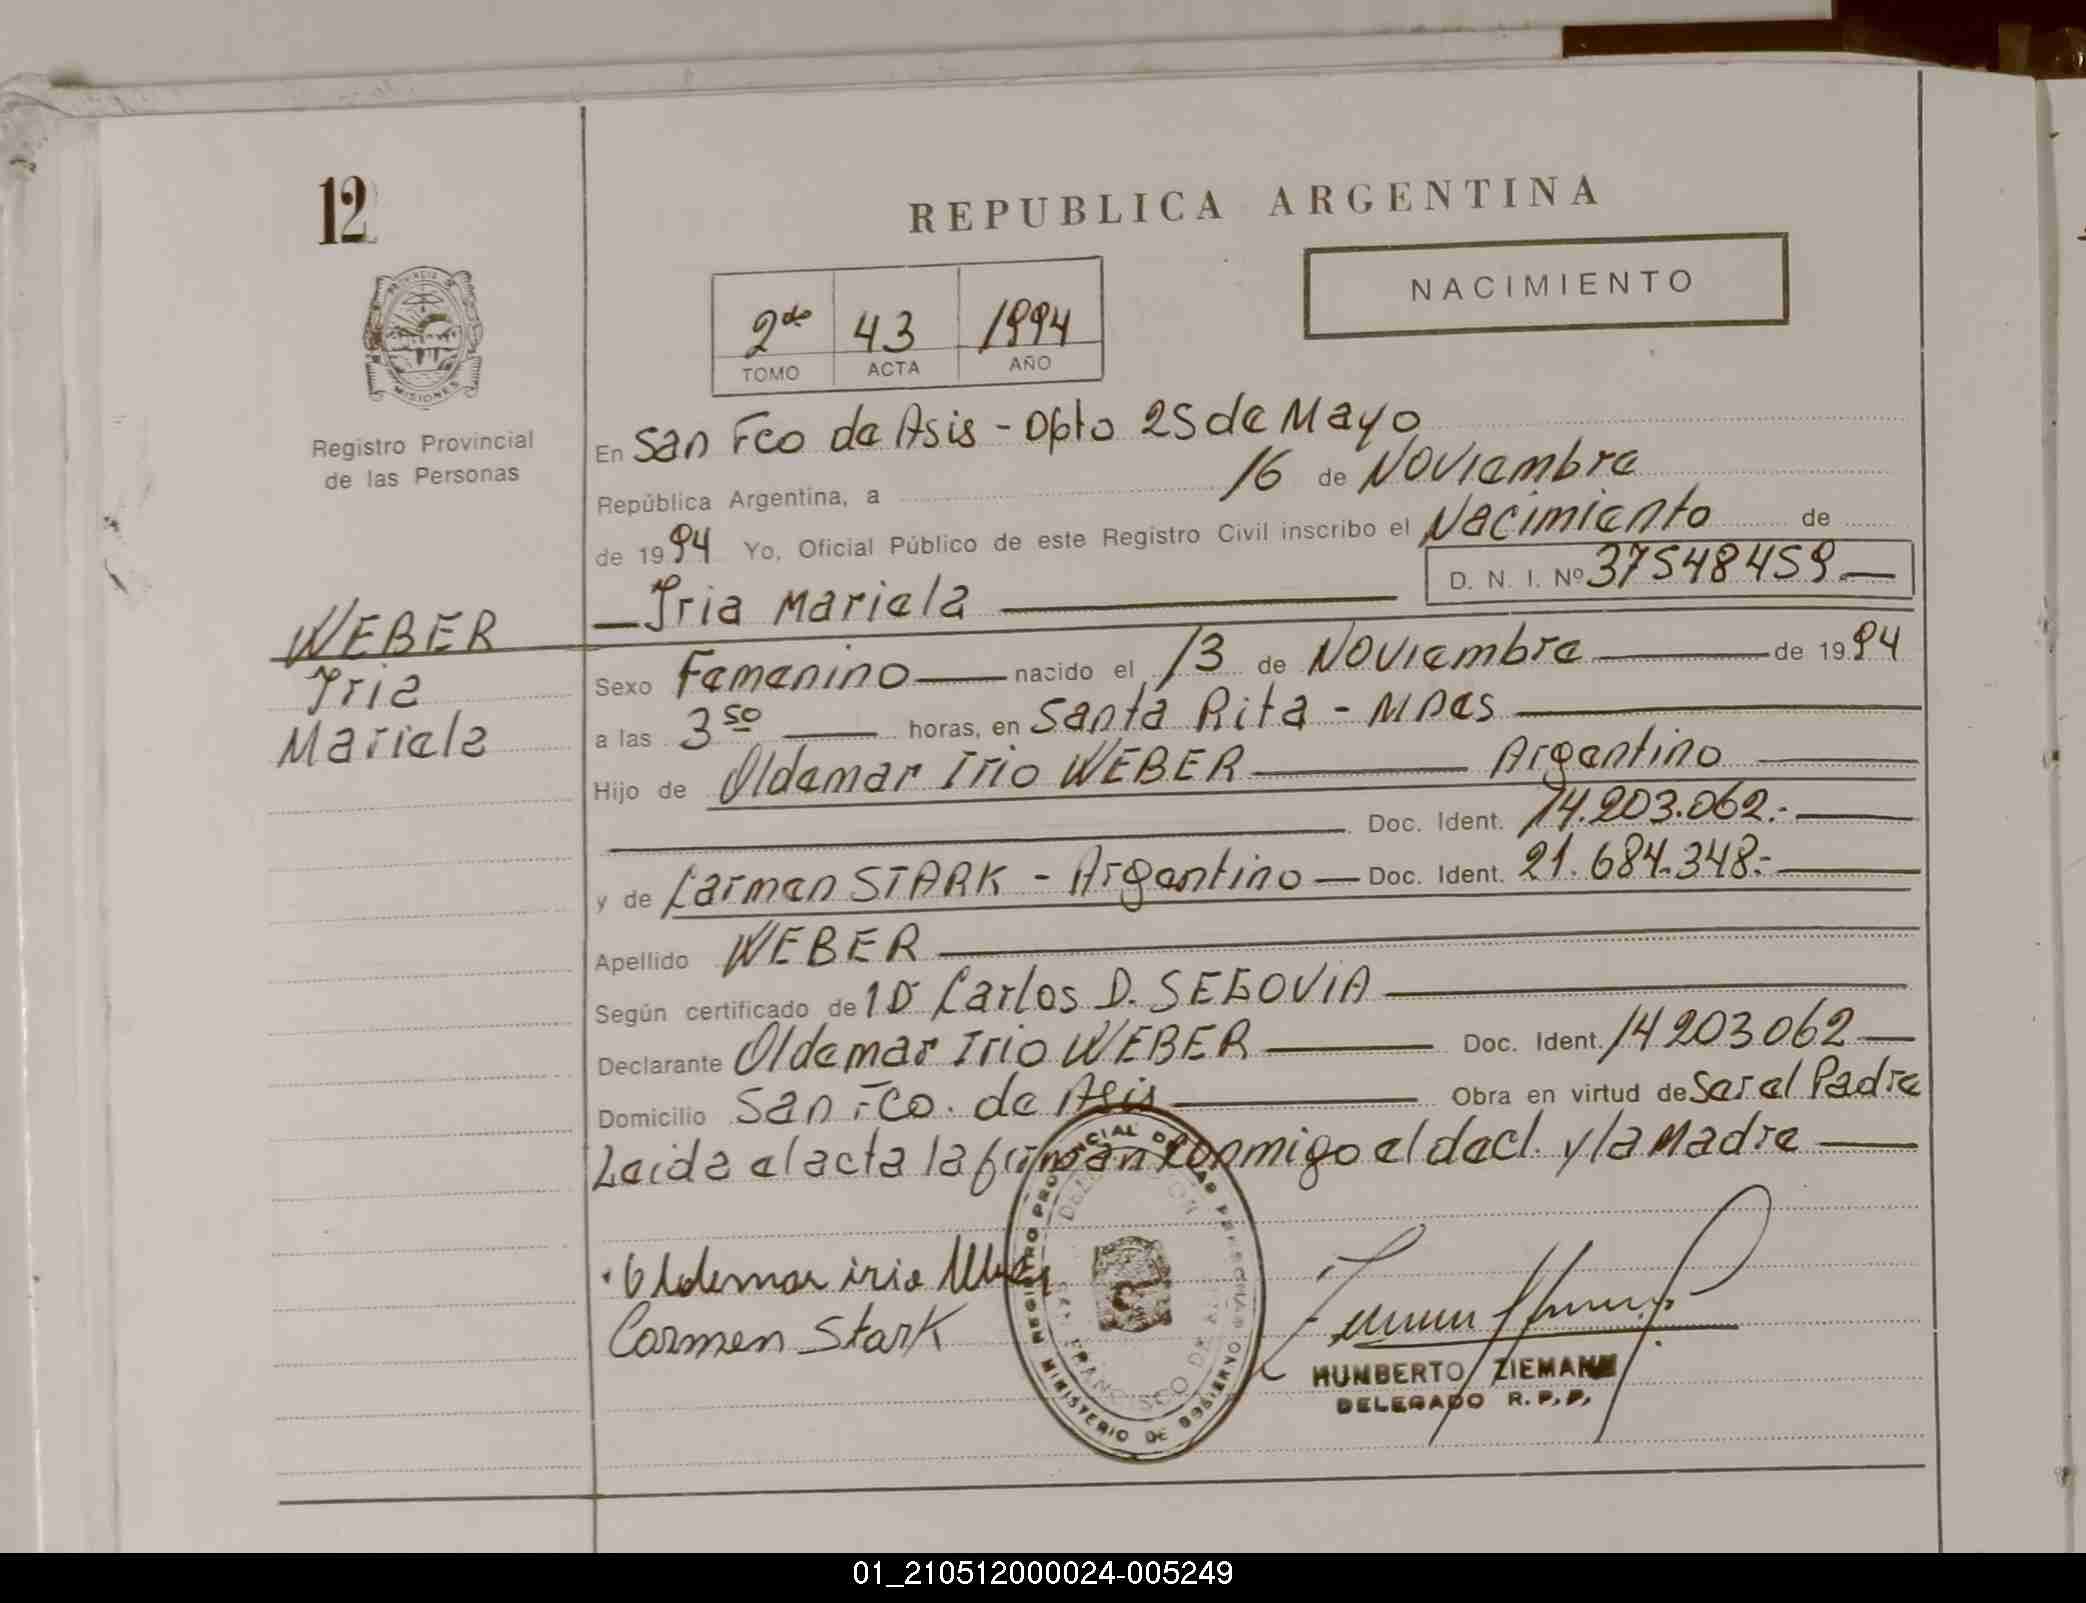 12
REPUBLICA ARGENTINA
NACIMIENTO
2do 43 1994
TOMO ACTA AÑO
PROVINCIA DE MISIONES
Registro Provincial
de las Personas
En San Fco de Asis - Dpto 25 de Mayo
República Argentina, a 16 de Noviembre
de 1994 Yo, Oficial Público de este Registro Civil inscribo el Nacimiento de
D. N. I. Nº 37548459.—
— Iria Mariela —
WEBER
Iria
Mariela
Sexo Femenino — nacido el 13 de Noviembre — de 1994
a las 3 50 — horas, en Santa Rita - Mnes —
Hijo de Oldemar Irio WEBER — Argentino —
— Doc. Ident. 14.203.062.- —
y de Carmen STARK - Argentino — Doc. Ident. 21.684.348.- —
Apellido WEBER —
Según certificado de 1 Dr Carlos D. SEGOVIA —
Declarante Oldemar Irio WEBER — Doc. Ident. 14203062 —
Domicilio San Fco. de Asis — Obra en virtud de Ser el Padre
Leida el acta la firman conmigo el decl. y la Madre —
Oldemar irio Weber
Carmen Stark
REGISTRO PROVINCIAL DE LAS PERSONAS
FRANCISCO DE
MINISTERIO DE GOBIERNO
HUMBERTO ZIEMANN
DELEGADO R.P.P.
01_210512000024-005249